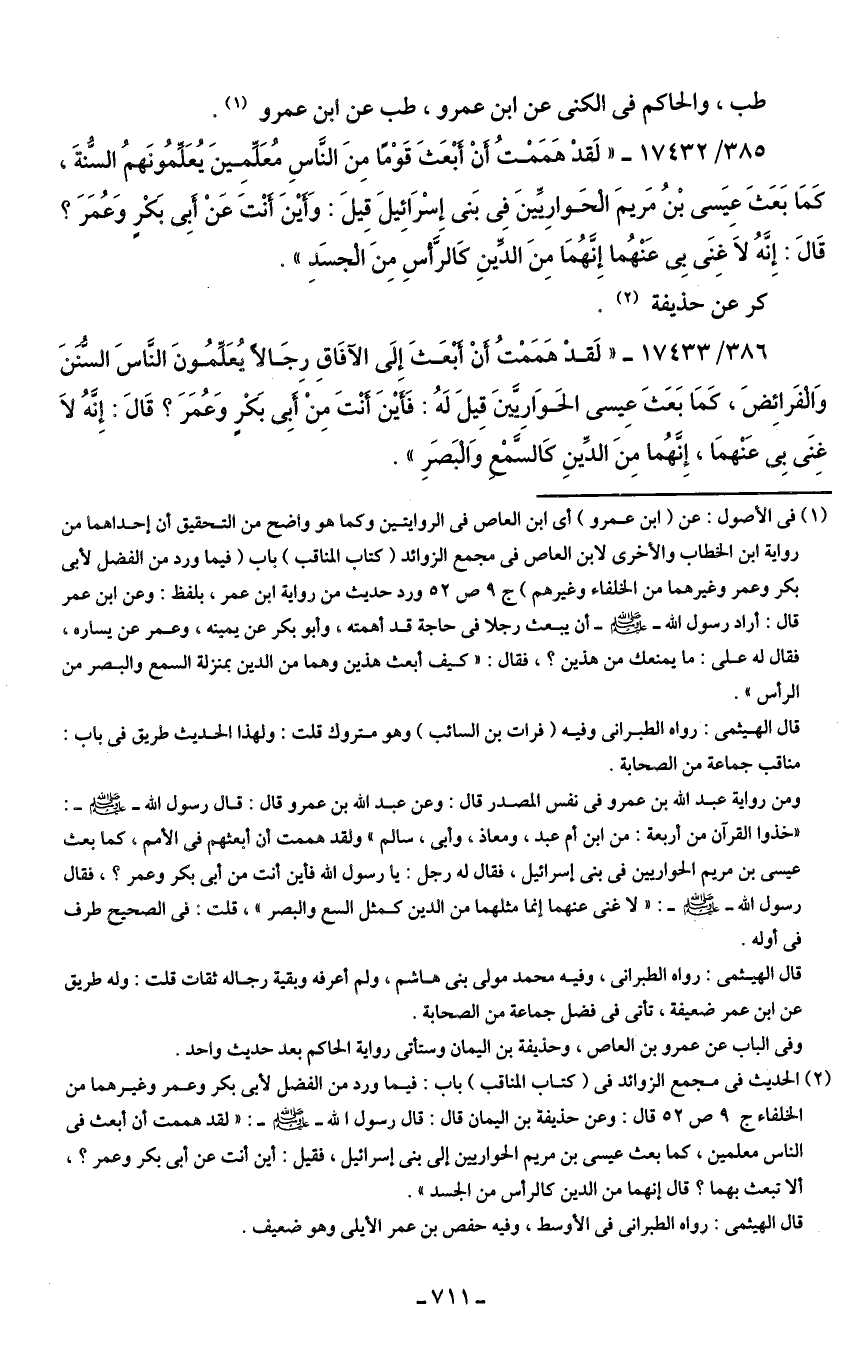 طب ، والحاكم فى الكنى عن ابن عمرو ، طب عن ابن عمرو (١) .
٣٨٥/ ١٧٤٣٢ ـ « لَقدْ هَمَمْتُ أَنْ أَبْعَثَ قَوْمًا مِنَ النَّاسِ مُعَلِّمـينَ يُعَلِّمُونَهمُ السُّنَّةَ ،
كَمَا بَعَثَ عِيَسى بْنُ مَريمَ الْحَـوارِيِّينَ فِى بَنِى إسْرَائيلَ قيلَ : وَأَيْنَ أنْتَ عَنْ أَبِى بَكْرٍ وعُمَرَ ؟
قَالَ : إِنَّهُ لاَ غِنَى بِى عَنْهُما إنَّهُمَا مِنَ الدِّينِ كَالرَّأْسِ مِنَ الْجسَدِ » .
كر عن حذيفة (٢) .
٣٨٦/ ١٧٤٣٣ ـ « لَقـدْ هَمَمْتُ أنْ أَبْعَـثَ إِلَى الآفَاقِ رِجَـالاً يُعَلِّمُـونَ النَّاسَ السُّنَنَ
وَالْفَرائِضَ ، كَمَا بَعَثَ عِيسى الحَـوَارِيَّينَ قيلَ لَهُ : فَأَيْنَ أَنْتَ مِنْ أَبِى بَكْرٍ وَعُمَرَ ؟ قَالَ : إِنَّهُ لاَ
غِنَى بِى عَنْهمَا ، إِنَّهُما مِنَ الدِّينِ كَالسَّمْعِ وَالْبَصَرِ » .
(١) فى الأصول : عن ( ابن عـمرو ) أى ابن العاص فى الروايتـين وكما هو واضح من التـحقيق أن إحـداهما من
رواية ابن الخطاب والأخرى لابن العاص فى مجمع الزوائد ( كتاب المناقب ) باب ( فيما ورد من الفضل لأبى
بكر وعمر وغيرهما من الخلفاء وغيرهم ) ج ٩ ص ٥٢ ورد حديث من رواية ابن عمر ، بلفظ : وعن ابن عمر
قال : أراد رسول الله ـ ﷺ ـ أن يبـعث رجلا فى حاجة قـد أهمته ، وأبو بكر عن يمينه ، وعـمر عن يساره ،
فقال له عـلى : ما يمنعك من هذين ؟ ، فقال : « كـيف أبعث هذين وهما من الدين بمنزلة السمع والبـصر من
الرأس » .
قال الهـيثمى : رواه الطبـرانى وفيـه ( فرات بن السائب ) وهو متـروك قلت : ولهذا الحـديث طريق فى باب :
مناقب جماعة من الصحابة .
ومن رواية عبـد الله بن عمرو فى نفس المصـدر قال : وعن عبـد الله بن عمرو قال : قـال رسول الله ـ ﷺ ـ :
«خذوا القرآن من أربعة : من ابن أم عبد ، ومعاذ ، وأبى ، سالم » ولقد هممت أن أبعثهم فى الأمم ، كما بعث
عيسى بن مريم الحواريين فى بنى إسرائيل ، فقال له رجل : يا رسول الله فأين أنت من أبى بكر وعمر ؟ ، فقال
رسول الله ـ ﷺ ـ : « لا غنى عنهما إنما مثلهما من الدين كـمثل السع والبصر » ، قلت : فى الصحيح طرف
فى أوله .
قال الهـيـثمى : رواه الطبرانى ، وفيـه محمد مولى بنى هـاشم ، ولم أعرفه وبقية رجـاله ثقات قلت : وله طريق
عن ابن عمر ضعيفة ، تأتى فى فضل جماعة من الصحابة .
وفى الباب عن عمرو بن العاص ، وحذيفة بن اليمان وستأتى رواية الحاكم بعد حديث واحد .
(٢) الحديث فى مـجمع الزوائد فى ( كتـاب المناقب ) باب : فيـما ورد من الفضل لأبى بكر وعـمر وغيـرهما من
الخلفاء ج ٩ ص ٥٢ قال : وعن حذيفة بن اليمان قال : قال رسول ا لله ـ ﷺ ـ : « لقد هممت أن أبعث فى
الناس معلمين ، كما بعث عيسى بن مريم الحواريين إلى بنى إسرائيل ، فقيل : أين أنت عن أبى بكر وعمر ؟ ،
ألا تبعث بهما ؟ قال إنهما من الدين كالرأس من الجسد » .
قال الهيثمى : رواه الطبرانى فى الأوسط ، وفيه حفص بن عمر الأيلى وهو ضعيف .
ـ ٧١١ ـ